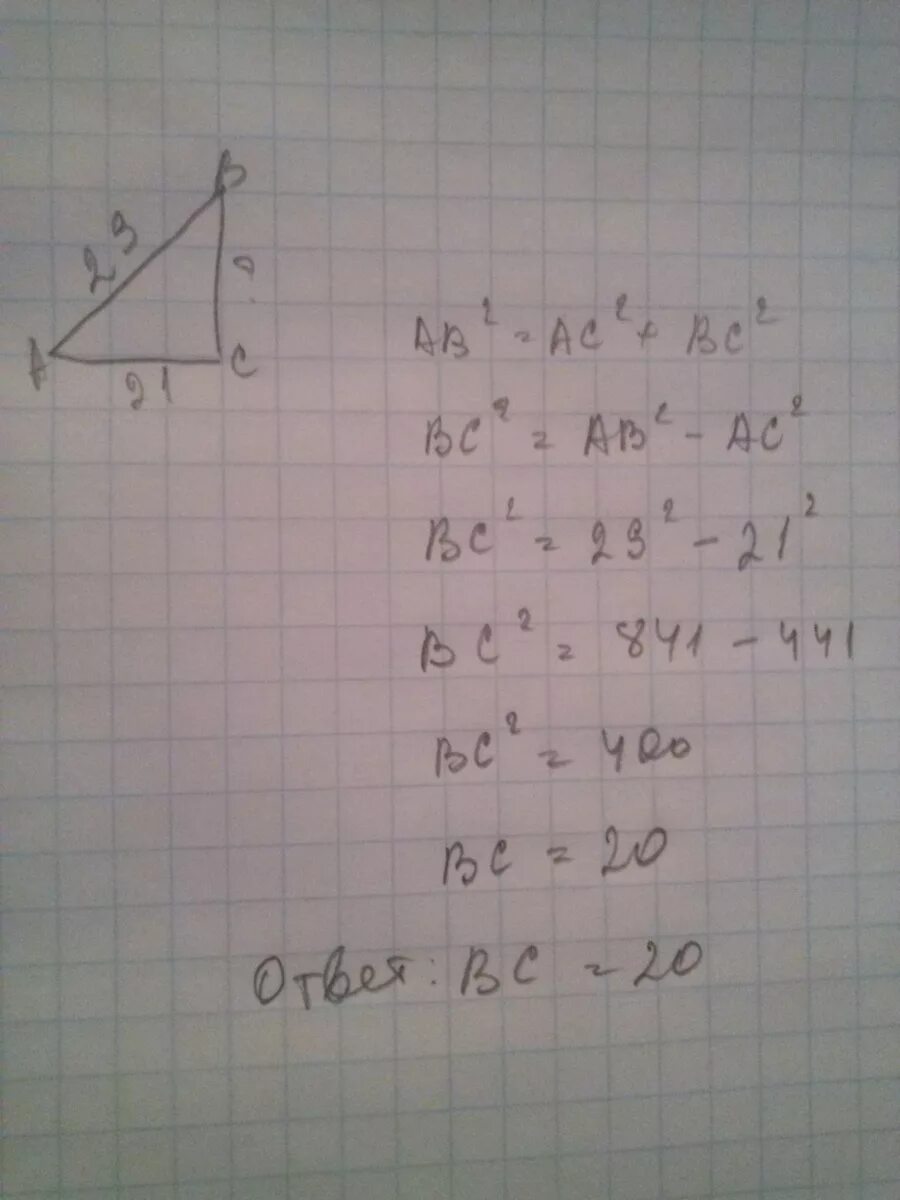 B
29
?
A
C
21
AB² = AC² + BC²
BC² = AB² - AC²
BC² = 29² - 21²
BC² = 841 - 441
BC² = 400
BC = 20
Ответ: BC = 20